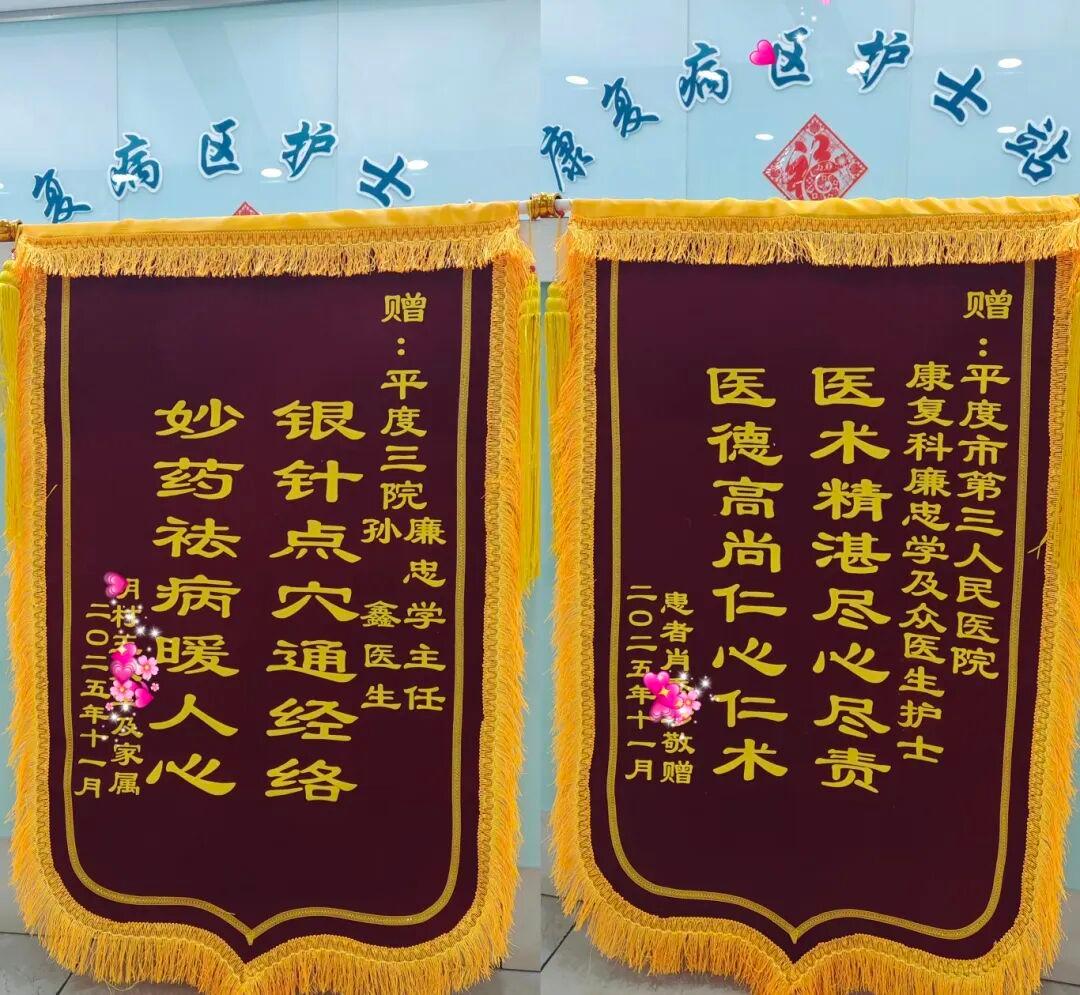 复病区护士
赠：平度三院
廉忠学主任
孙鑫医生
银针点穴通经络
妙药祛病暖人心
及家属
二〇二五年十一月
康复病区护士站
福
赠：平度市第三人民医院
康复科廉忠学及众医生护士
医术精湛尽心尽责
医德高尚仁心仁术
患者肖 敬赠
二〇二五年十一月